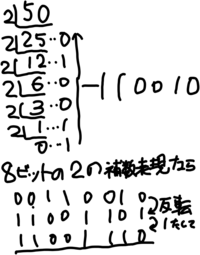 2 50
2 25…0
2 12…1 －110010
2 6…0
2 3…0
2 1…1
0…1
8ビットの2の補数表現なら
00110010
11001101 反転
11001110 1たして